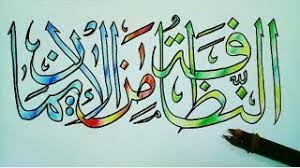 النَّظَافَةُ مِنَ الْإِيْمَانِ